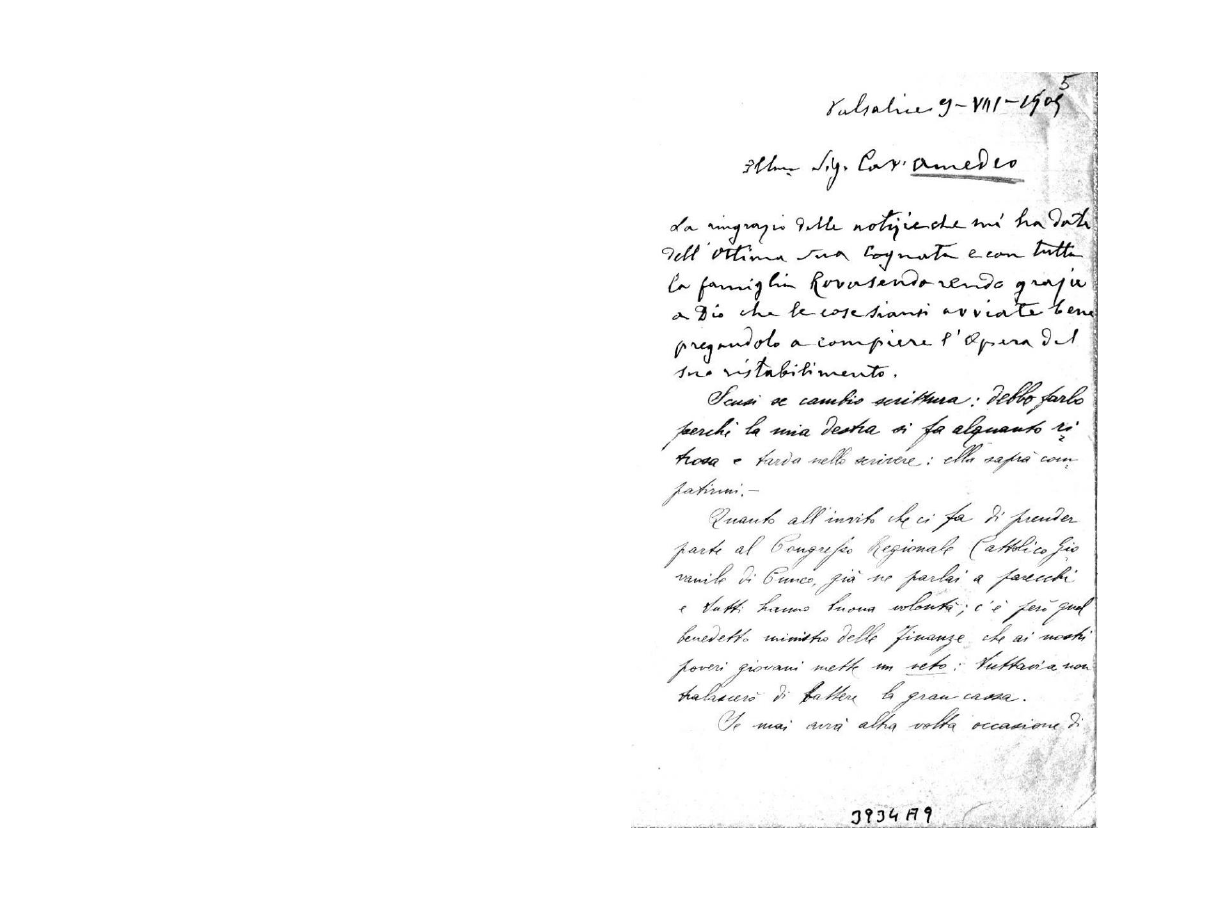 5
Valsalice 9-VIII-1905
Illmo Sig. Cav. Amedeo
La ringrazio delle notizie che mi ha date
dell'Ottima sua Cognata e con tutta
la famiglia Rovasenda rendo grazie
a Dio che le cose siansi avviate bene
pregandolo a compiere l'Opera del
suo ristabilimento.
Scusi se cambio scrittura: debbo farlo
perchè la mia destra si fa alquanto ri=
trosa e tarda nello scrivere: ella saprà com=
patirmi.-
Quanto all'invito che ci fa di prender
parte al Congresso Regionale Cattolico Gio
vanile di Cuneo, già ne parlai a parecchi
e tutti hanno buona volontà; c'è però quel
benedetto ministro delle Finanze che ai nostri
poveri giovani mette un veto: tuttavia non
tralascerò di battere la gran cassa.
Se mai avrà altra volta occasione di
3934A9